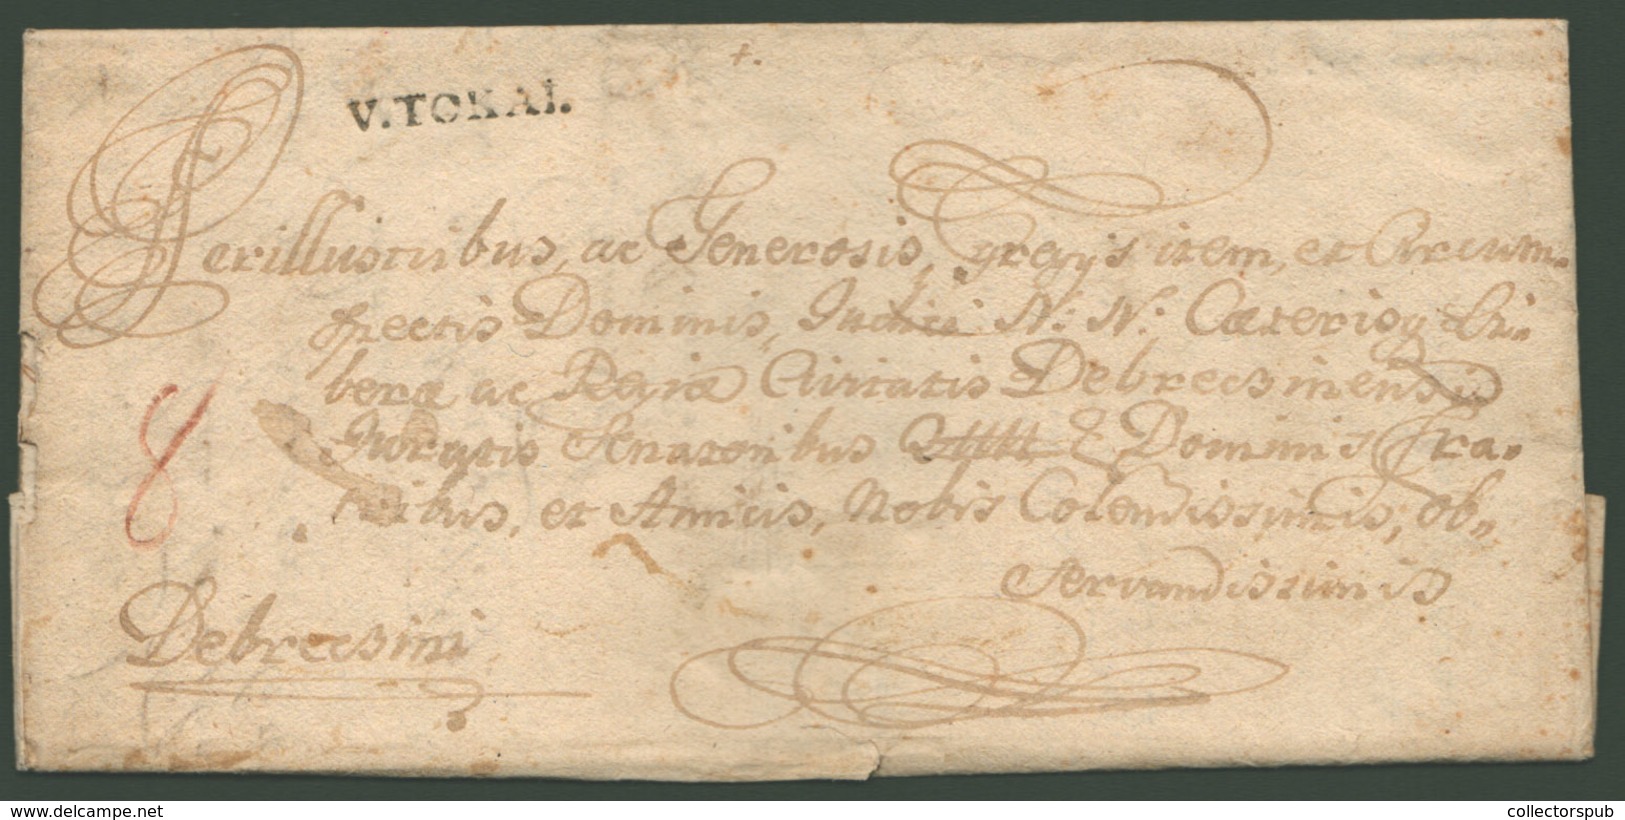 V. TOKAI.
Perillustribus, ac Generosis, Egregys item, et Circum-
spectis Dominis, Iudici N: N: Caeterisq Li-
berae ac Regiae Civitatis Debrecsinensis
Iuratis Senatoribus & Dominis Fra-
tribus, et Amicis, Nobis Colendissimis, ob-
servandissimis
8
Debrecsini
www.delcampe.net
collectorspub